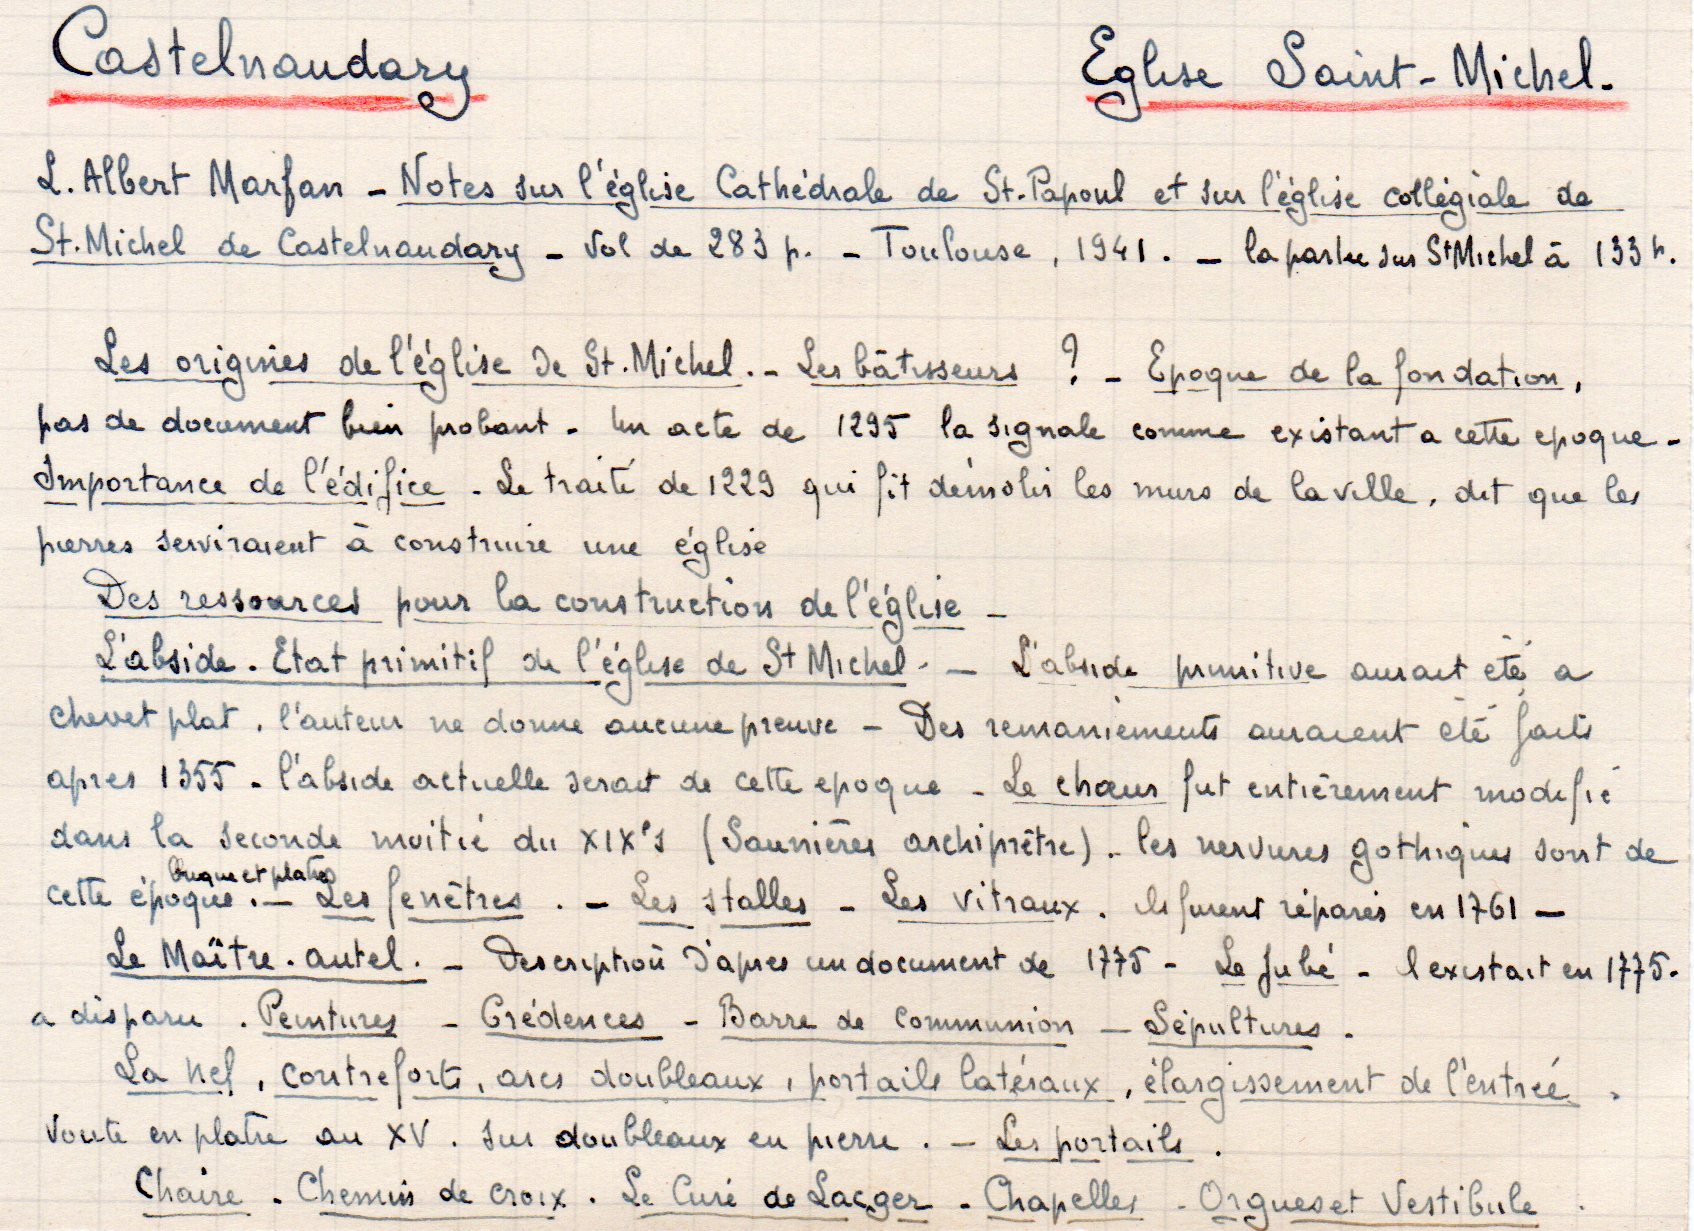 Castelnaudary Eglise Saint-Michel.
L. Albert Marfan - Notes sur l'église Cathédrale de St. Papoul et sur l'église collégiale de
St. Michel de Castelnaudary - Vol de 283 p. - Toulouse, 1941. - la partie sur St Michel à 133 p.
Les origines de l'église de St. Michel. - Les bâtisseurs ? - Epoque de la fondation,
pas de document bien probant - Un acte de 1295 la signale comme existant a cette epoque -
Importance de l'édifice - Le traité de 1229 qui fit démolir les murs de la ville, dit que les
pierres serviraient à construire une église
Des ressources pour la construction de l'église -
L'abside. Etat primitif de l'église de St Michel. - L'abside primitive aurait été a
chevet plat, l'auteur ne donne aucune preuve - Des remaniements auraient été faits
apres 1355 - l'abside actuelle serait de cette epoque - Le chœur fut entièrement modifié
dans la seconde moitié du XIXe s (Saunières archiprêtre). les nervures gothiques sont de
brique et platre
cette époque. - Les fenêtres. - Les stalles - Les vitraux. ils furent réparés en 1761 -
Le Maître-autel. - Description d'apres un document de 1775 - Le Jubé - l existait en 1775.
a disparu. Peintures - Crédences - Barre de communion - Sépultures.
La nef, contreforts, arcs doubleaux, portails latéraux, élargissement de l'entrée.
Voute en platre au XV. sur doubleaux en pierre. - Les portails.
Chaire - Chemin de croix. Le Curé de Lacger - Chapelles - Orgues et Vestibule.